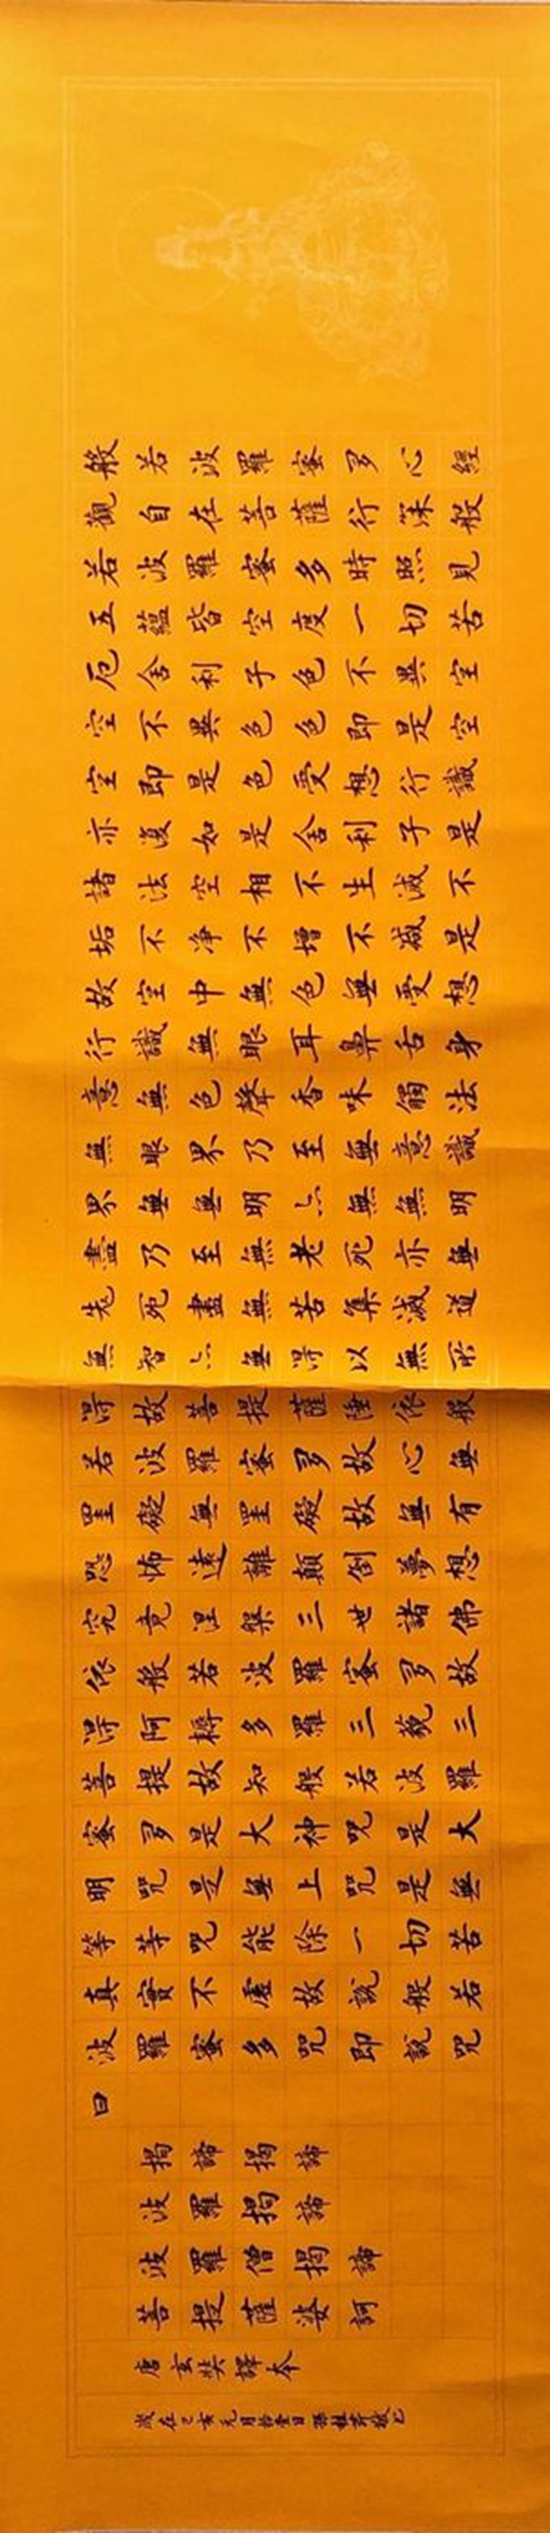 般若波羅蜜多心經
觀自在菩薩行深般
若波羅蜜多時照見
五蘊皆空度一切苦
厄舍利子色不異空
空不異色色即是空
空即是色受想行識
亦復如是舍利子是
諸法空相不生滅不
垢不淨不增不減是
故空中無色無受想
行識無眼耳鼻舌身
意無色聲香味觸法
無眼界乃至無意識
界無無明亦無無明
盡乃至無老死亦無
老死盡無苦集滅道
無智亦無得以無所
得故菩提薩埵依般
若波羅蜜多故心無
罣礙無罣礙故無有
恐怖遠離顛倒夢想
究竟涅槃三世諸佛
依般若波羅蜜多故
得阿耨多羅三藐三
菩提故知般若波羅
蜜多是大神咒是大
明咒是無上咒是無
等等咒能除一切苦
真實不虛故說般若
波羅蜜多咒即說咒
曰
揭諦揭諦
波羅揭諦
波羅僧揭諦
菩提薩婆訶
唐玄奘譯本
歲在己亥元月拾壹日